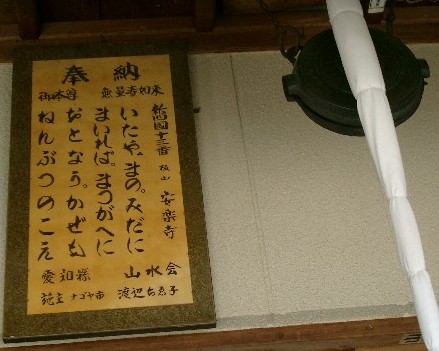 奉納
御本尊 無量寿如来
新四国十三番 板山 安楽寺
いたやまの。みだに
まいれば。まつがへに
おとなう。かぜも
ねんぶつのこえ
山水会
愛知県
渡辺ち恵子
施主 ナゴヤ市